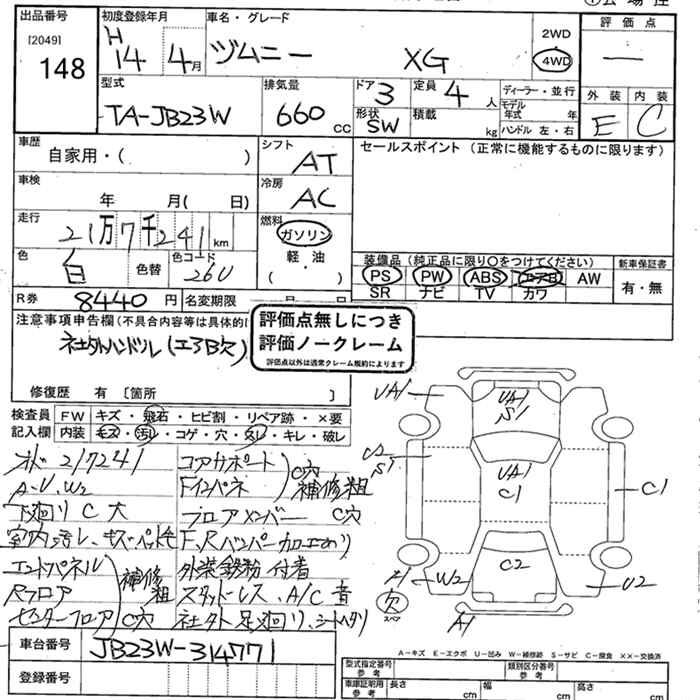 出品番号
[2049]
148
初度登録年月
H
14 4月
車名・グレード
ジムニー XG
2WD
4WD
評価点
—
型式
TA-JB23W
排気量
660 CC
ドア 3
形状 SW
定員 4 人
積載 kg
ディーラー・並行
モデル年式 年
ハンドル 左・右
外装 内装
E C
車歴
自家用・( )
シフト
AT
セールスポイント (正常に機能するものに限ります)
車検
年 月( 日)
冷房
AC
走行
21万7千241 km
燃料
ガソリン
軽・油
( )
色
白
色替
色コード
26U
装備品 (純正品に限り○をつけてください)
PS PW ABS エアB AW
SR ナビ TV カワ
新車保証書
有・無
R券
8440 円
名変期限 月 日
注意事項申告欄 (不具合内容等は具体的に
社外ハンドル (エアB欠)
評価点無しにつき
評価ノークレーム
評価点以外は通常クレーム規約によります
修復歴 有 〔箇所 〕
検査員
記入欄
FW キズ・飛石・ヒビ割・リペア跡・×要
内装 キズ・汚レ・コゲ・穴・スレ・キレ・破レ
217241
コアサポート
Fインパネ
C穴
補修粗
A-U、W2
下廻り C 大
フロアメンバー C穴
室内汚レ、
F,Rバンパー加工あり
エンドパネル
Rフロア
センターフロア
補修粗
C穴
外装鉄粉付着
スタッドレス、A/C 音
社外足廻り、シートヘタリ
UA1
UA1
S1
UA1
C1
S1
C1
C2
A1
W2
U2
欠
スペア
A1
車台番号
JB23W-314771
登録番号
A-キズ E-エクボ U-凹み W-補修跡 S-サビ C-腐食 ××-交換済
型式指定番号
参考
類別区分番号
参考
車庫証明用
参考
長さ cm
幅 cm
高さ cm